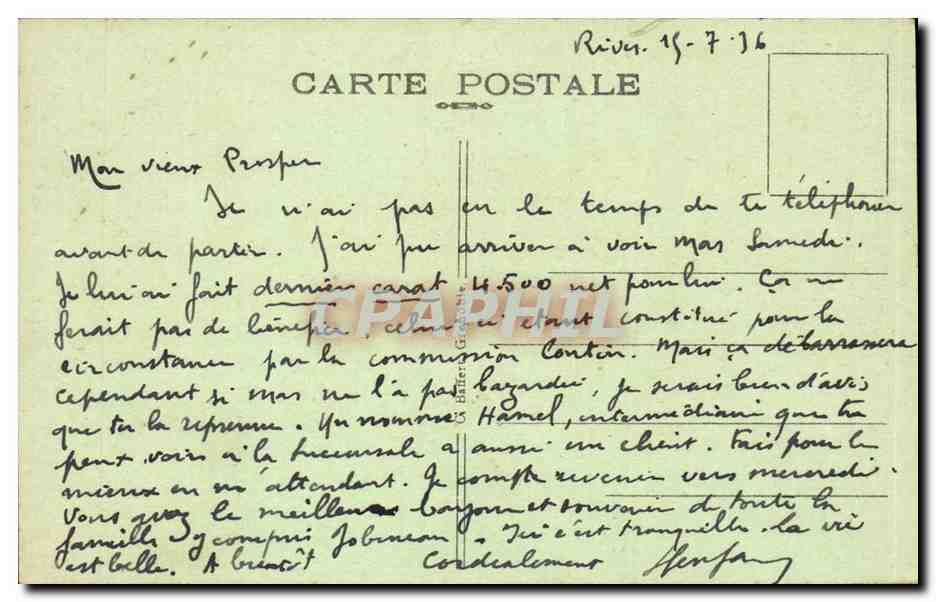 Rives. 15-7-36
CARTE POSTALE
Mon vieux Prosper
Je n'ai pas eu le temps de te téléphoner
avant de partir. J'ai pu arriver à voir Mas Samedi.
Je lui ai fait dernier carat 4.500 net pour lui. Ça ne
ferait pas de bénéfice, celui-ci étant constitué pour la
circonstance par la commission Contin. Mais ça débarrassera
cependant si Mas ne l'a pas bazardée, je serais bien d'avis
que tu la reprenne. Un nommé Hamel, intermédiaire que tu
peux voir à la Succursale a aussi un client. Fais pour le
mieux en m'attendant. Je compte revenir vers mercredi.
Vous avez le meilleur bonjour et souvenir de toute la
famille y compris Jobineau. Ici c'est tranquille. la vie
est belle. A bientôt Cordialement
G. Baffert, Grenoble.
CPAPHIL